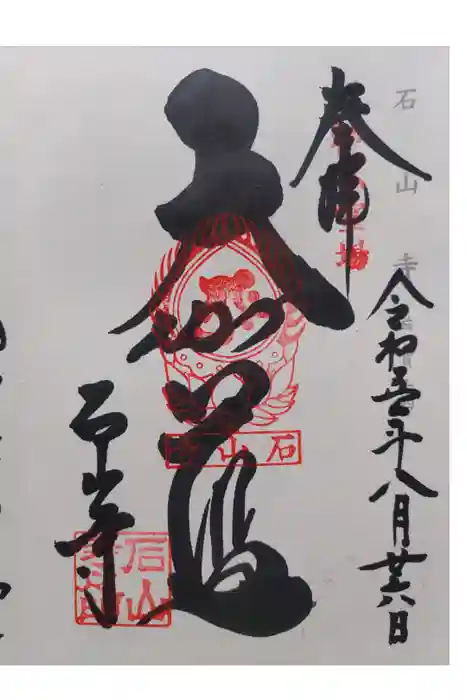 石山寺
奉拝
令和五年八月廿六日
大伽藍
石山寺
石山寺
石山